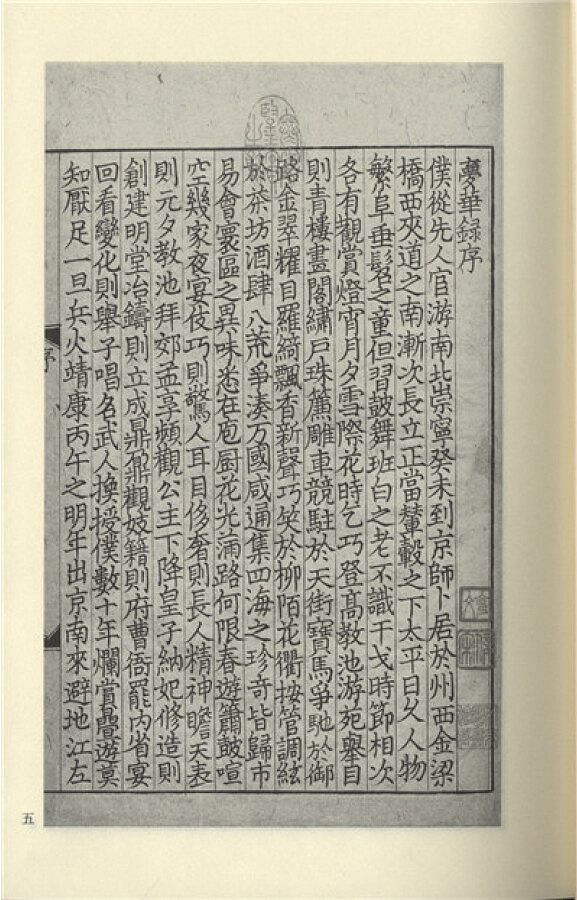 夣華録序
僕從先人官游南北崇寧癸未到京師卜居於州西金梁
橋西夾道之南漸次長立正當輦轂之下太平日久人物
繁阜垂髫之童但習鼓舞班白之老不識干戈時節相次
各有觀賞燈宵月夕雪際花時乞巧登高教池游苑舉目
則青樓畫閣繡户珠簾雕車競駐於天街寶馬爭馳於御
路金翠耀目羅綺飄香新聲巧笑於柳陌花衢按管調絃
於茶坊酒肆八荒爭湊万國咸通集四海之珍奇皆歸市
易會寰區之異味悉在庖厨花光滿路何限春遊簫鼓喧
空幾家夜宴伎巧則驚人耳目侈奢則長人精神瞻天表
則元夕教池拜郊孟享頻觀公主下降皇子納妃修造則
創建明堂冶鑄則立成鼎鼐觀妓籍則府曹衙罷内省宴
回看變化則舉子唱名武人換授僕數十年爛賞疊遊莫
知厭足一旦兵火靖康丙午之明年出京南來避地江左
序
五